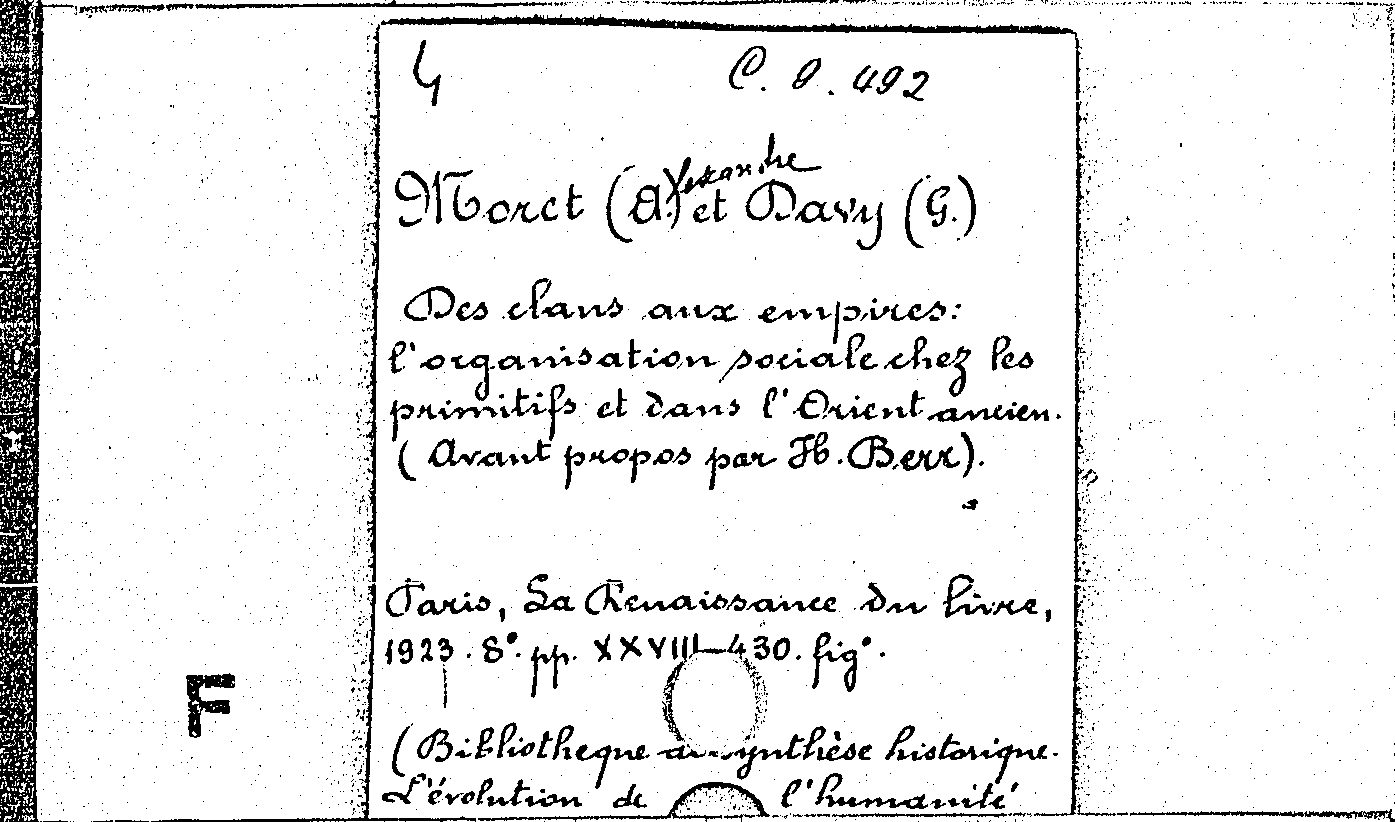 4 C. O. 492
Moret (A.lexandre) et Davy (G.)
Des clans aux empires:
l'organisation sociale chez les
primitifs et dans l'Orient ancien.
(Avant propos par H. Berr).
Paris, La Renaissance du livre,
1923. 8°. pp. XXVIII-430. fig°.
F
(Bibliotheque synthèse historique.
L'évolution de l'humanité